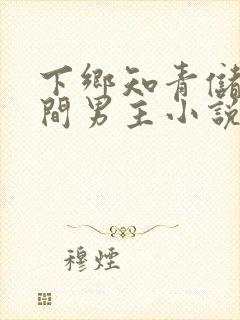 下鄉知青儲
間男主小說
穆煙